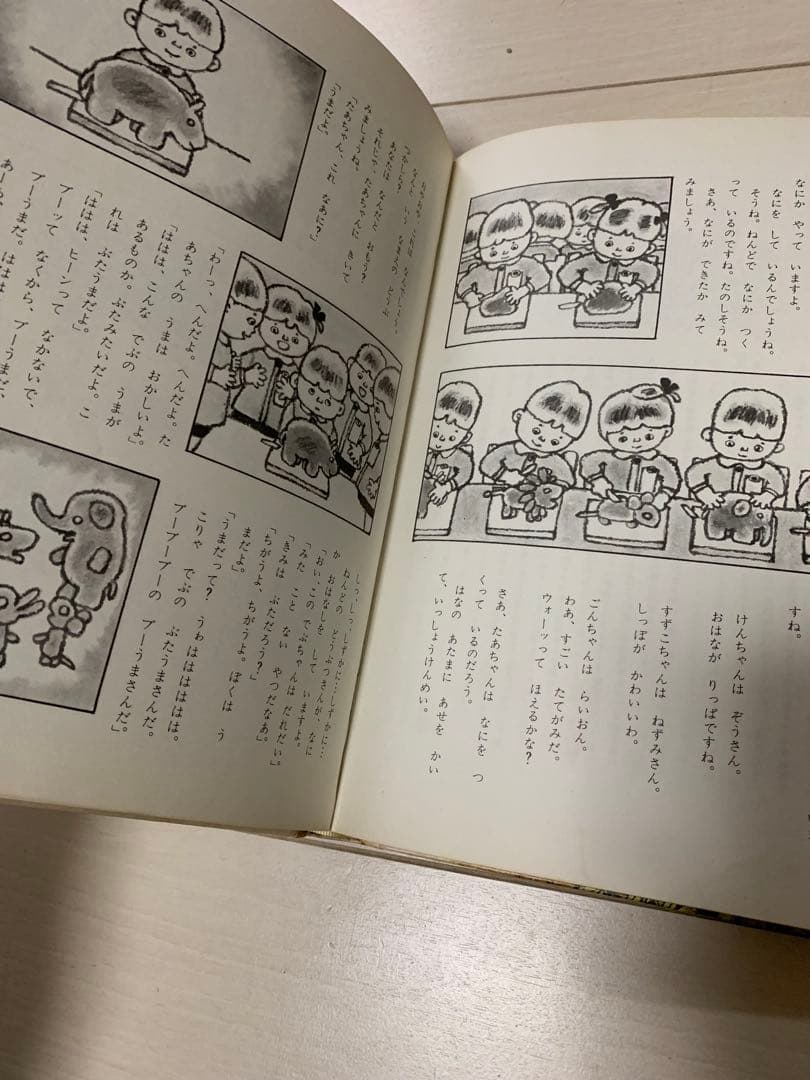 なにか やって いますよ。
なにを して いるんでしょうね。
そうね。ねんどで なにか つく
って いるのですね。たのしそうね。
さあ、なにが できたか みて
みましょう。
すね。
けんちゃんは ぞうさん。
おはなが りっぱですね。
すずこちゃんは ねずみさん。
しっぽが かわいいわ。
ごんちゃんは らいおん。
わあ、すごい たてがみだ。
ウォーッって ほえるかな？
さあ、たあちゃんは なにを つ
くって いるのだろう。
はなの あたまに あせを かい
て、いっしょうけんめい。
おやおや、これは なんでしょう。
なんと いう なまえの どうぶ
つかしら？
あなたは なんだと おもう？
それじゃ、たあちゃんに きいて
みましょうね。
「たあちゃん、これ なあに？」
「うまだよ。」
「わーっ、へんだよ。へんだよ。た
あちゃんの うまは おかしいよ。」
「ははは、こんな でぶの うまが
あるものか。ぶたみたいだよ。こ
れは ぶたうまだよ。」
「ははは、ヒーンって なかないで、
ブーッて なくから、ブーうまだ、
ははは
しっ、しっ、しずかに…しずかに…
ねんどの どうぶつさんが、なに
か おはなしを して いますよ。
「おい、この でぶちゃんは だれだい。」
「みた こと ない やつだなあ。」
「きみは ぶただろう？」
「ちがうよ、ちがうよ。ぼくは う
まだよ。」
「うまだって？ うゎはははははは。
こりゃ でぶの ぶたうまさんだ。
ブーブーブーの ブーうまさんだ。」